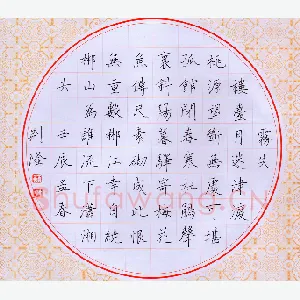 霧失
樓臺月迷津渡
桃源望斷無處可堪
孤館閉春寒杜鵑聲
裏斜陽暮驛寄梅花
魚傳尺素砌成此恨
無重數郴江幸自繞
郴山為誰流下瀟湘
去 壬辰孟春
劉
Shufawang.cn